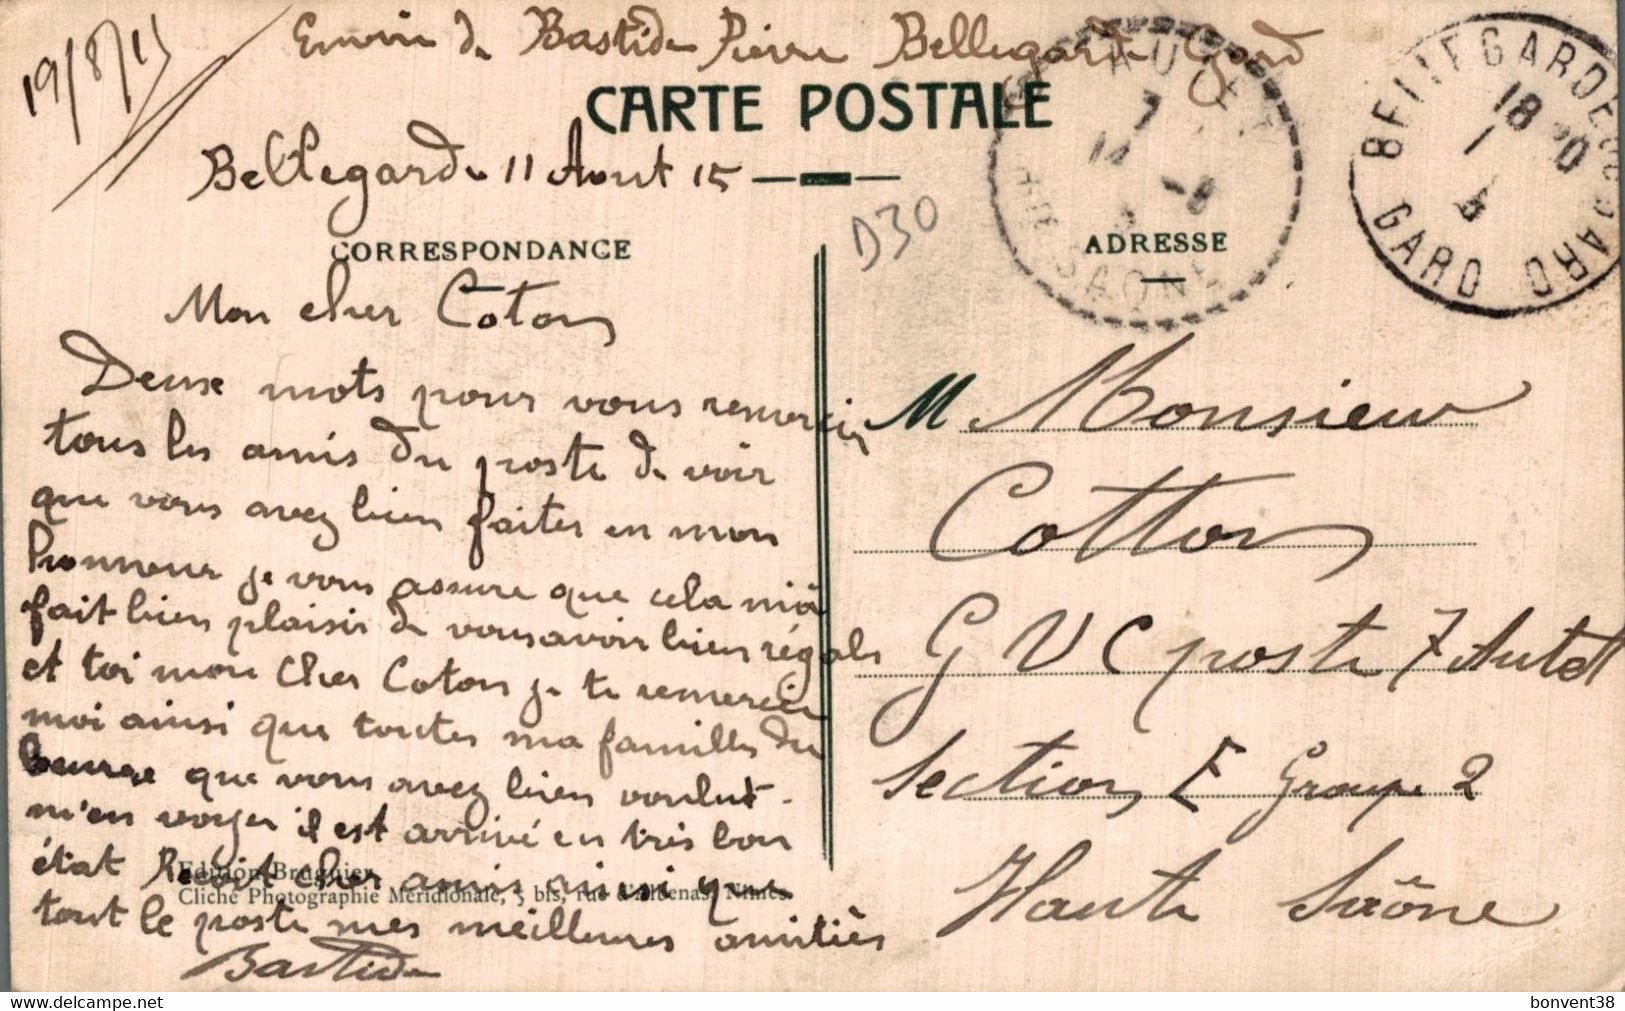 19/8/15
Envoie de Bastide Pierre Bellegarde Gard
CARTE POSTALE
Bellegarde 11 Aout 15
D30
CORRESPONDANCE
ADRESSE
AUTET
7
14 -8
HTE SAONE
BELLEGARDE DU GARD
18 20
1
GARD
Mon cher Coton
Deux mots pour vous remercier
tous les amis du poste de voir
que vous avez bien faites en mon
honneur je vous assure que cela mà
fait bien plaisir de vous avoir bien régals
et toi mon cher Coton je te remercie
moi ainsi que toutes ma familles du
beurre que vous avez bien voulut
m'en voyer il est arrivé en très bon
état Recoit cher amis ainsi que
tout le poste mes meilleures amitiès
Bastide
Edition Brugnier
Cliché Photographie Méridionale, 5 bis, rue d'Albenas, Nimes
M Monsieur
Cotton
G V C poste 7 Autet
Section E Groupe 2
Haute Saône
bonvent38